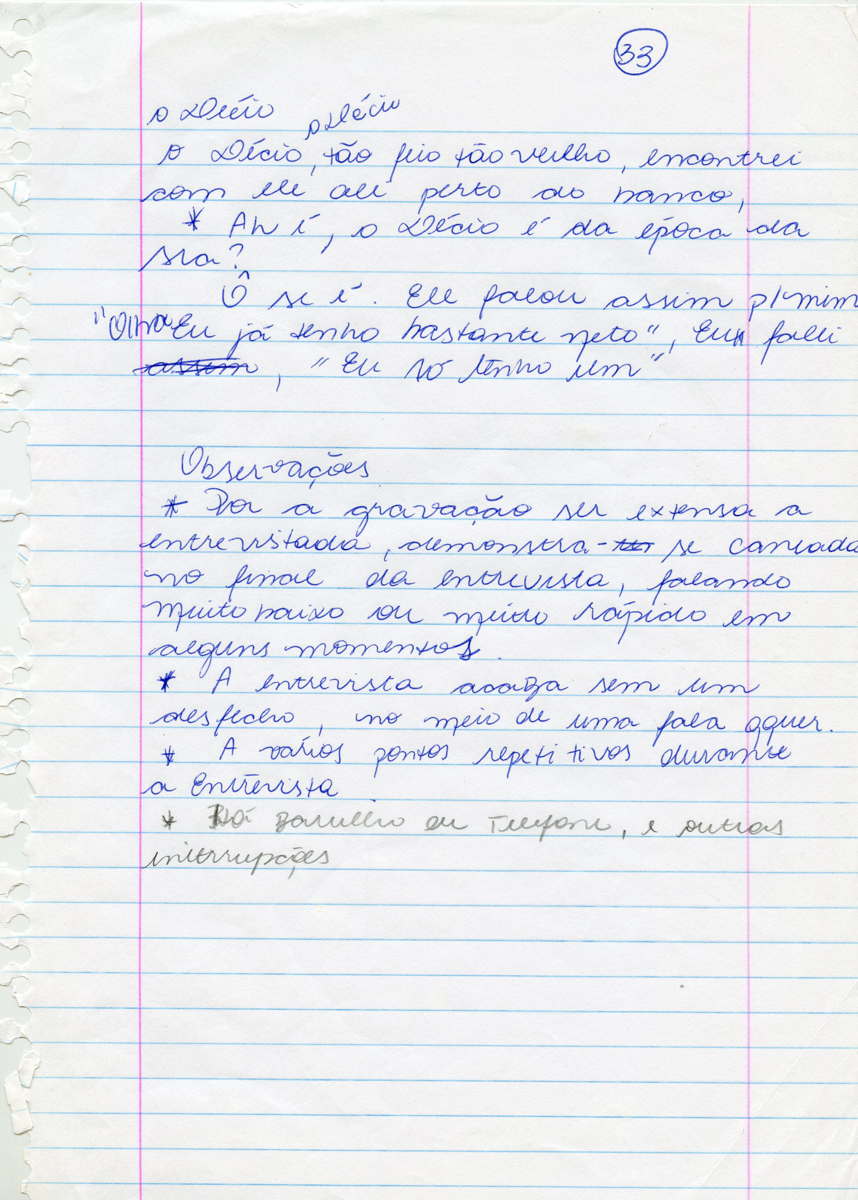 33
o Décio
o Décio
o Décio, tão feio tão velho, encontrei
com ele ali perto do banco,
* Ah é, o Décio é da época da
sra?
Ô se é. Ele falou assim p/ mim
"Olha Eu já tenho bastante neto", Eu falei
assim, "Eu só tenho um"
Observações
* Por a gravação ser extensa a
entrevistada, demonstra-se cansada
no final da entrevista, falando
muito baixo ou muito rápido em
alguns momentos.
* A entrevista acaba sem um
desfecho, no meio de uma fala qquer.
* A vários pontos repetitivos durante
a Entrevista
* Há barulho de Telefone, e outras
interrupções